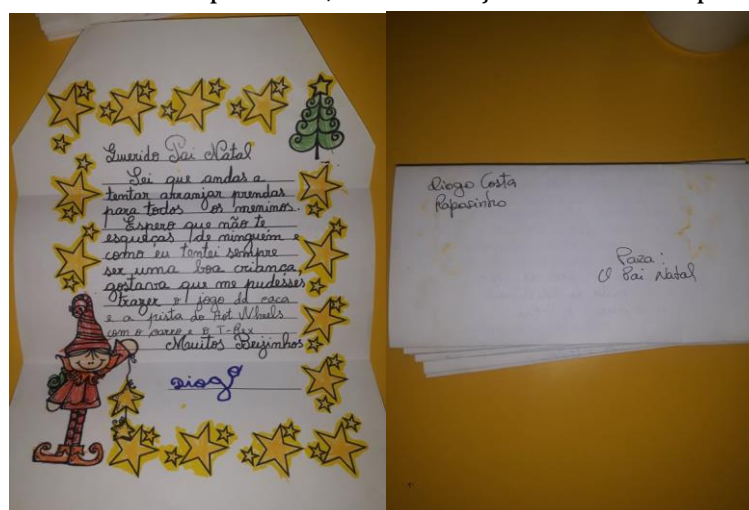 Querido Pai Natal
Sei que andas a
tentar arranjar prendas
para todos os meninos.
Espero que não te
esqueças de ninguém e
como eu tentei sempre
ser uma boa criança,
gostaria que me pudesses
trazer o jogo da caca
e a pista do Hot Wheels
com o carro e o T-Rex
Muitos Beijinhos
Diogo
diogo Costa
Raposinho
Para:
O Pai Natal